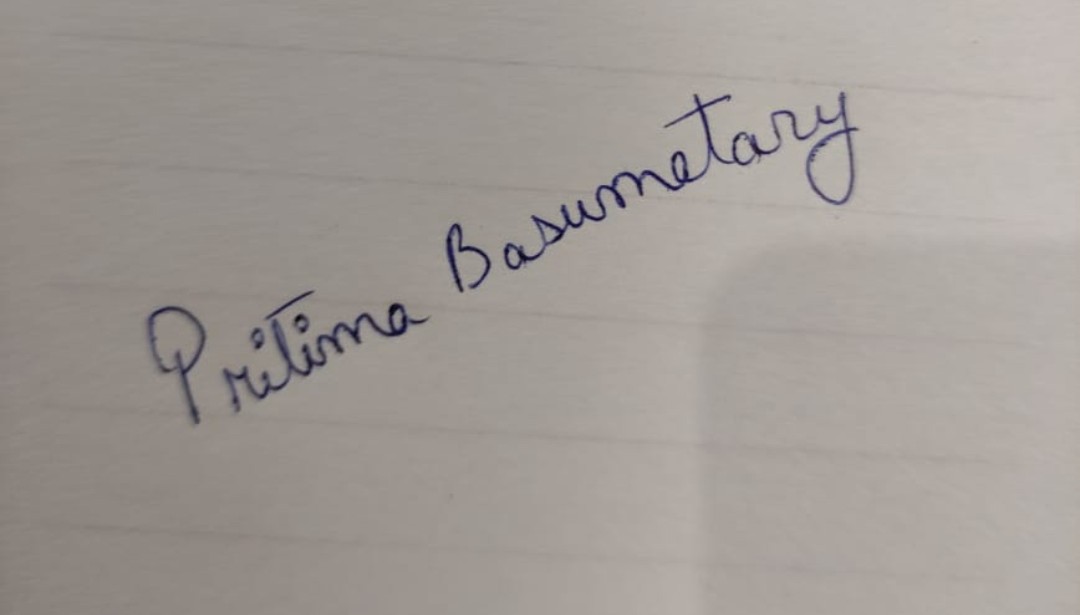 Pritima Basumatary